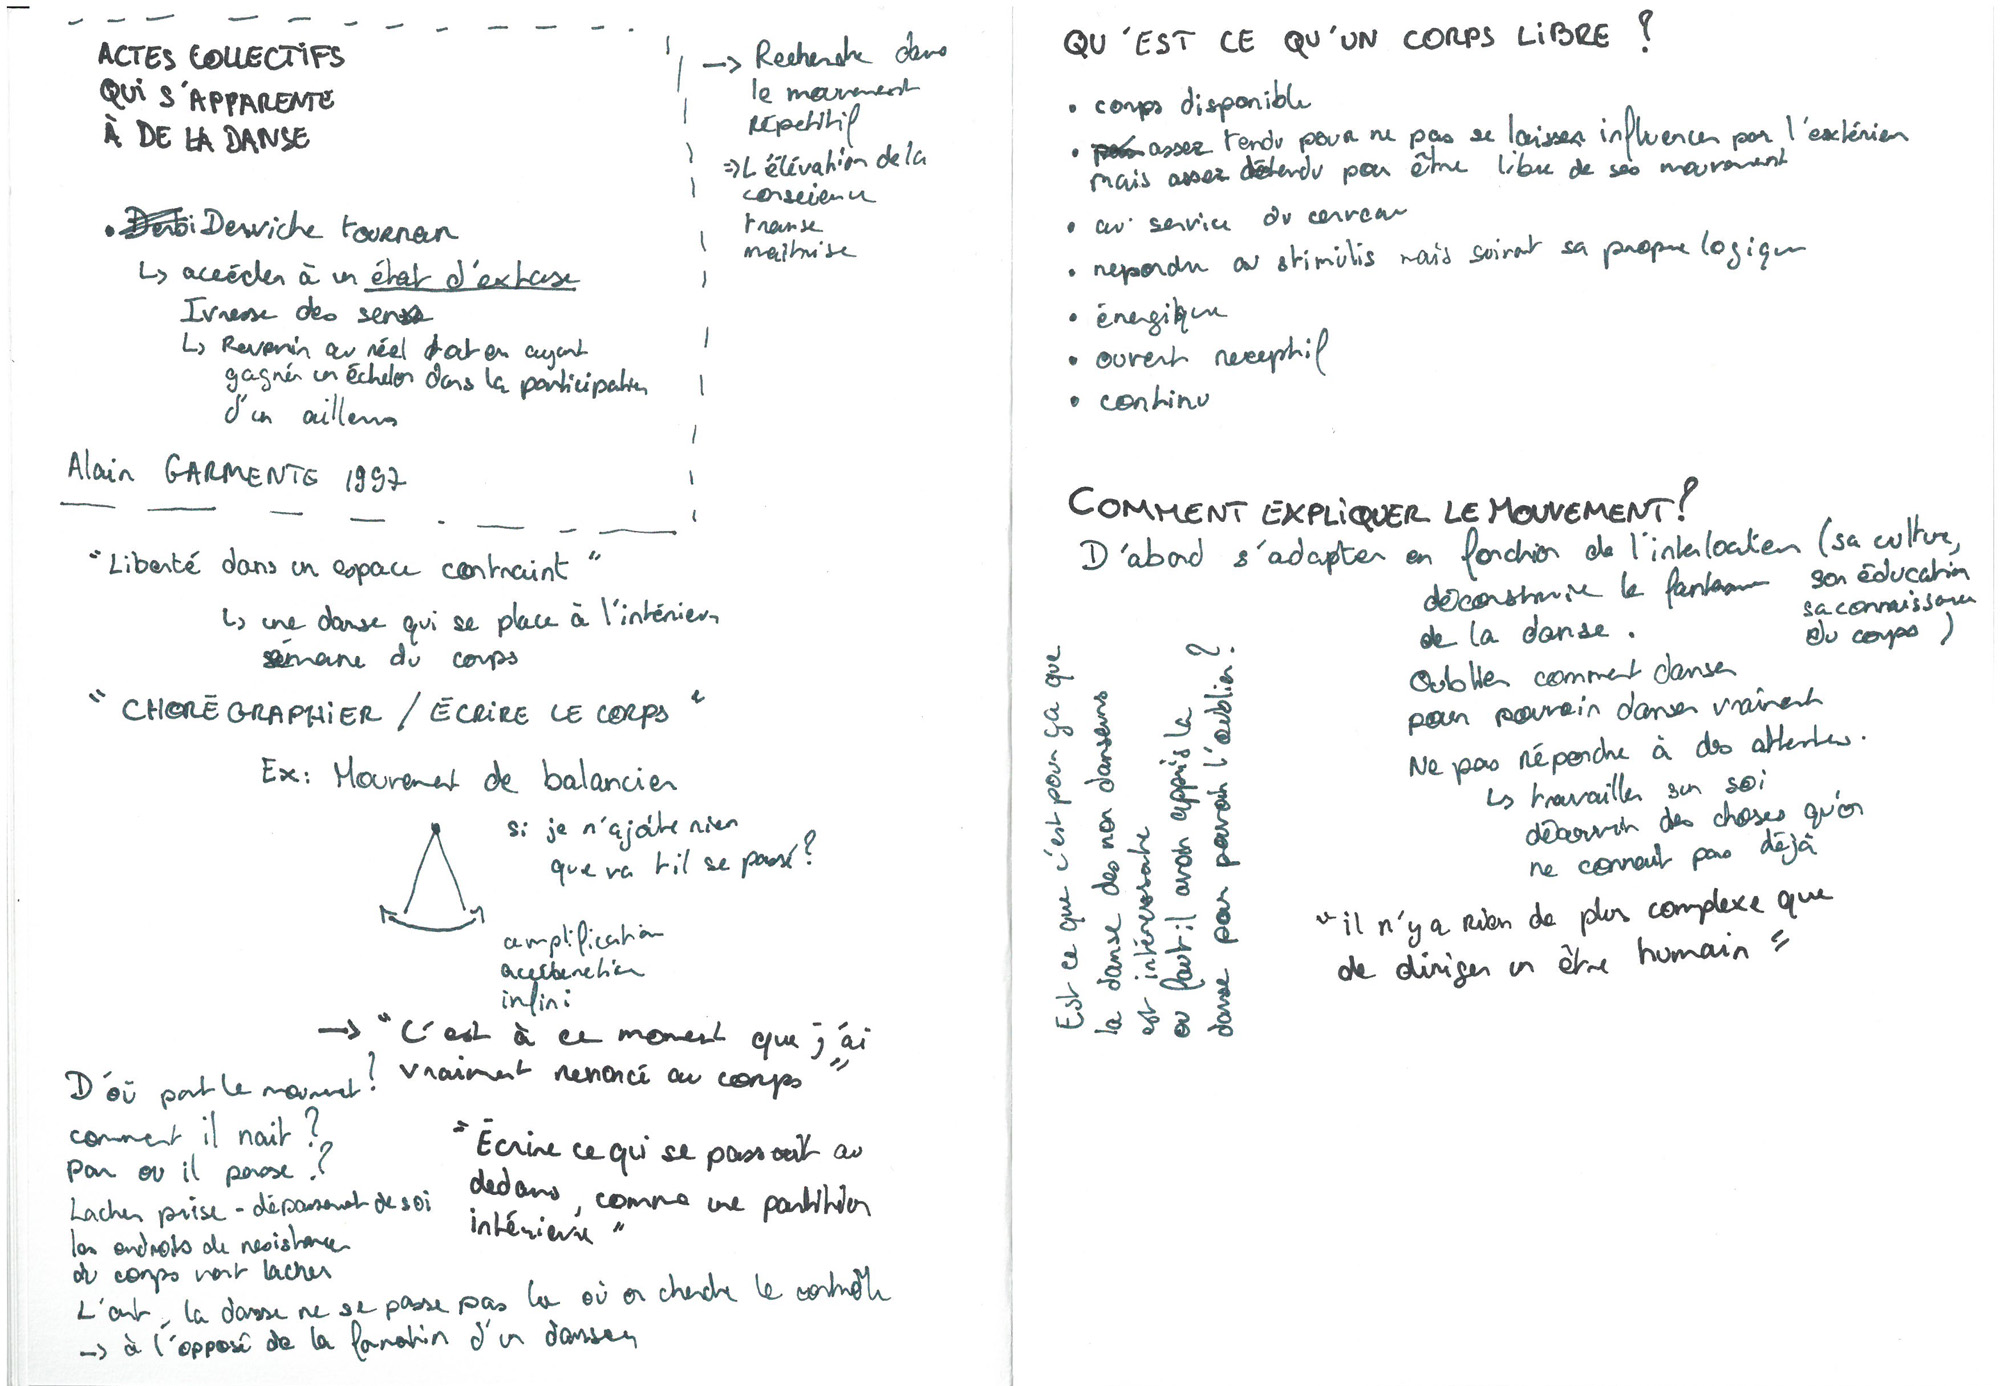 ACTES COLLECTIFS
QUI S'APPARENTE
À DE LA DANSE
• Derviche tournan
↳ accéder à un état d'extase
Ivresse des sens
↳ Revenir au réel tout en ayant
gagner un échelon dans la participation
d'un ailleurs
Alain GARMENTE 1997
→ Recherche dans
le mouvement
répétitif
⇒ L'élévation de la
conscience
transe
maitrise
"Liberté dans un espace contraint"
↳ une danse qui se place à l'intérieur
même du corps
"CHORÉGRAPHIER / ÉCRIRE LE CORPS"
Ex: Mouvement de balancier
si je n'ajoute rien
que va t il se passé?
amplification
acceleration
infini
→ "C'est à ce moment que j'ai
vraiment renoncé au corps"
D'où part le mouvement?
comment il nait?
Par ou il passe?
Lacher prise - dépassement de soi
les endroits de resistances
du corps vont lacher
"Écrire ce qui se passait au
dedans, comme une partition
intérieure"
L'art, la danse ne se passe pas la où on cherche le contrôle
→ à l'opposé de la formation d'un danseur
QU'EST CE QU'UN CORPS LIBRE ?
• corps disponible
• assez tendu pour ne pas se laisser influencer par l'extérieur
mais assez détendu pour être libre de ses mouvement
• au service du cerveau
• repondre au stimulis mais suivant sa propre logique
• énergique
• ouvert receptif
• continu
COMMENT EXPLIQUER LE MOUVEMENT?
D'abord s'adapter en fonction de l'interlocuteur (sa culture,
son éducation
sa connaissance
du corps)
déconstruire le fantasme
de la danse.
Oublier comment danser
pour pouvoir danser vraiment
Ne pas répondre à des attentes.
↳ travailler sur soi
découvrir des choses qu'on
ne connait pas déjà
"il n'y a rien de plus complexe que
de diriger un être humain"
Est ce que c'est pour ça que
la danse des non danseurs
est intéressante
ou faut il avoir appris la
danse pour pouvoir l'oublier?